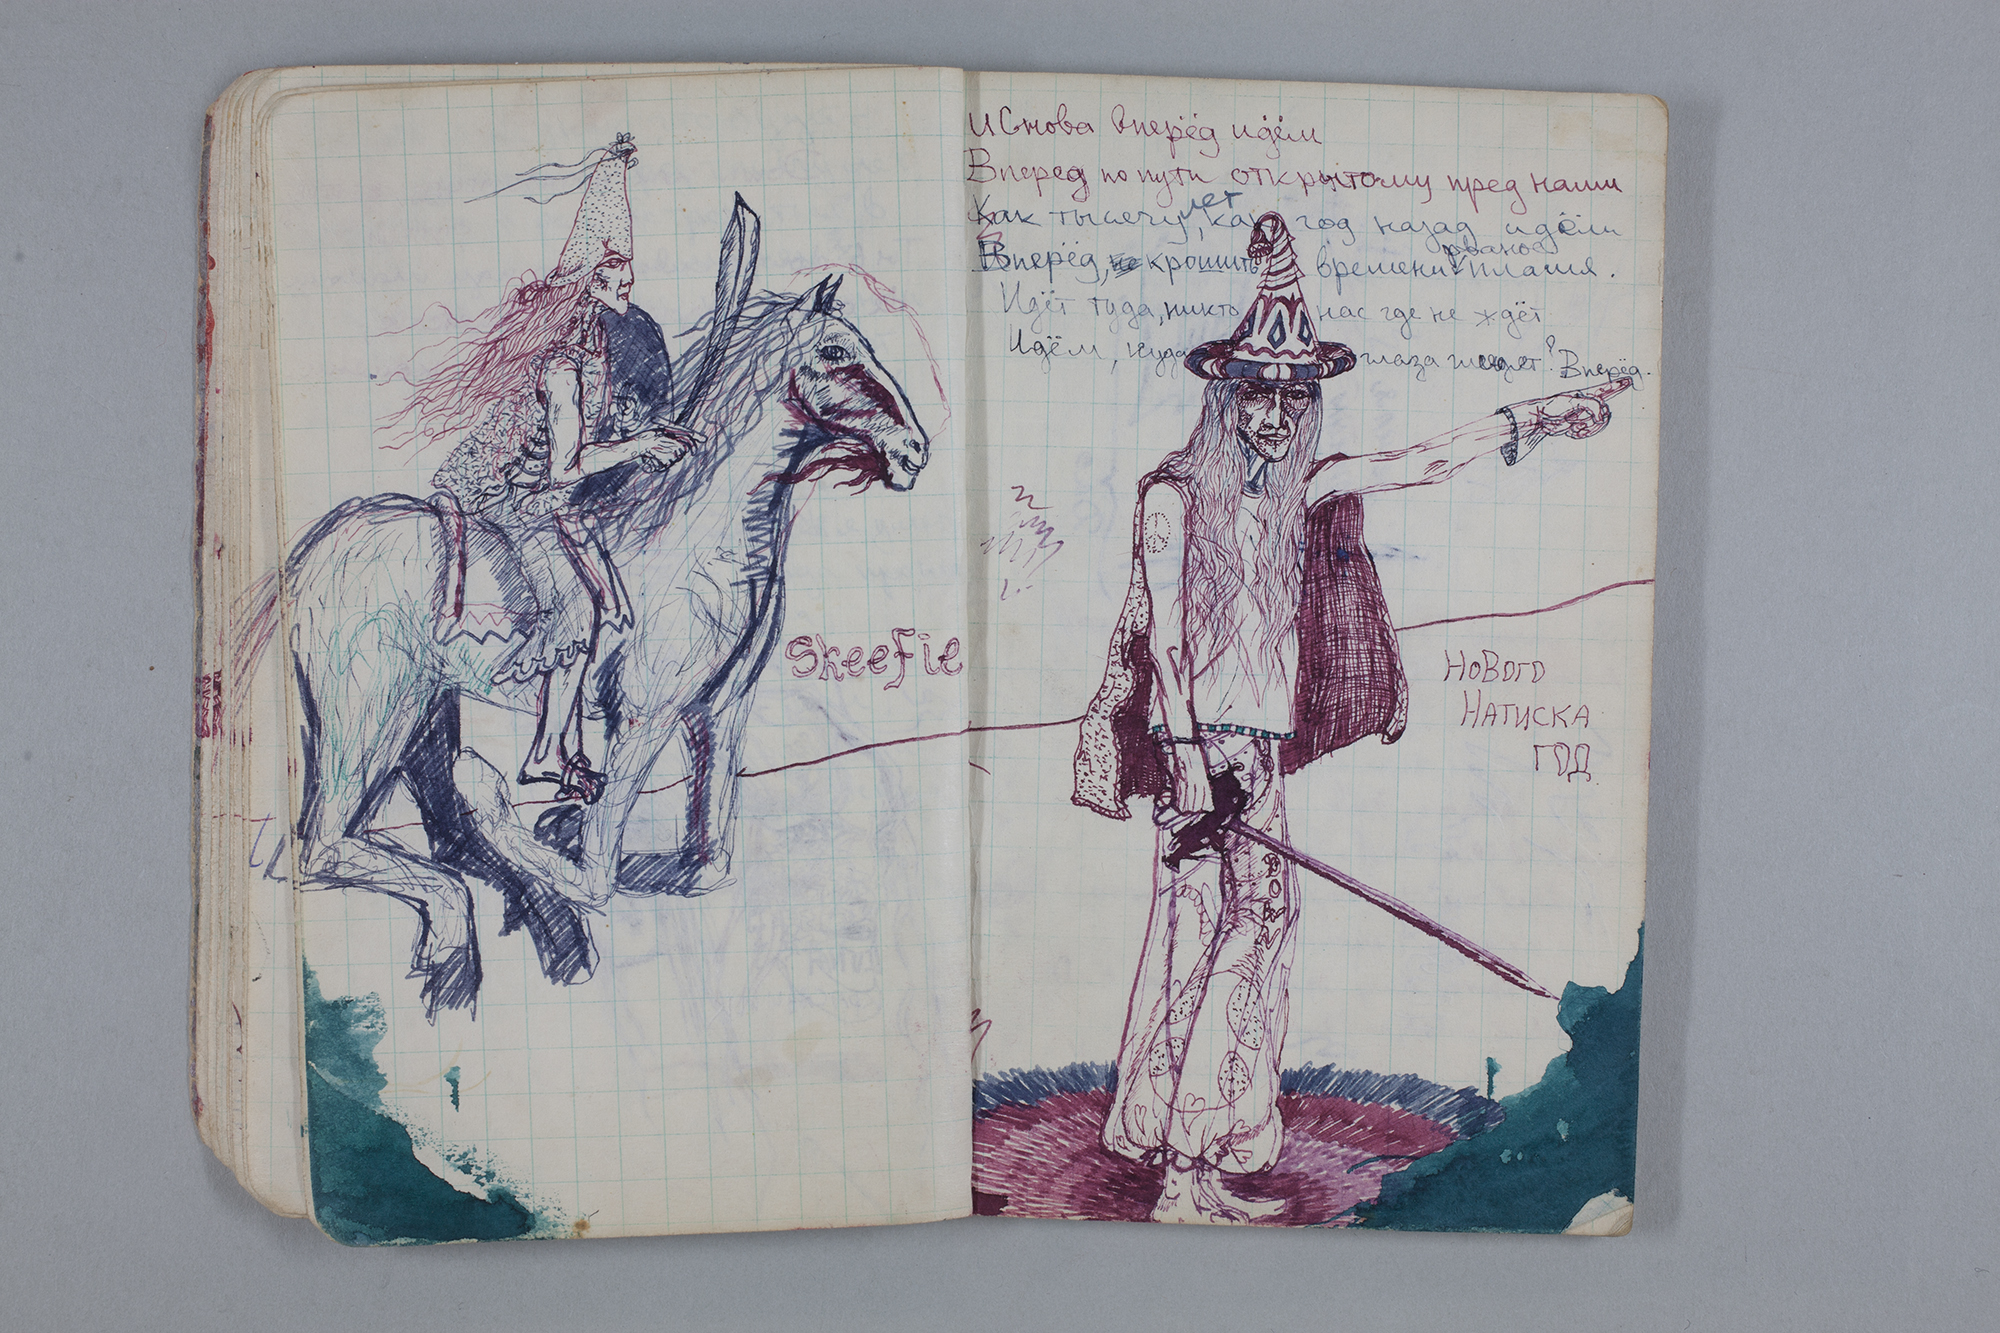 Skeefie
И Снова вперёд идём
Вперёд по пути открытому пред нами
Как тысячу лет, как год назад идём
Вперёд, кромсить времени рваное пламя.
Идёт туда, никто нас где не ждёт
Идём, куда глаза глядят? Вперёд.
Нового
Натиска
год